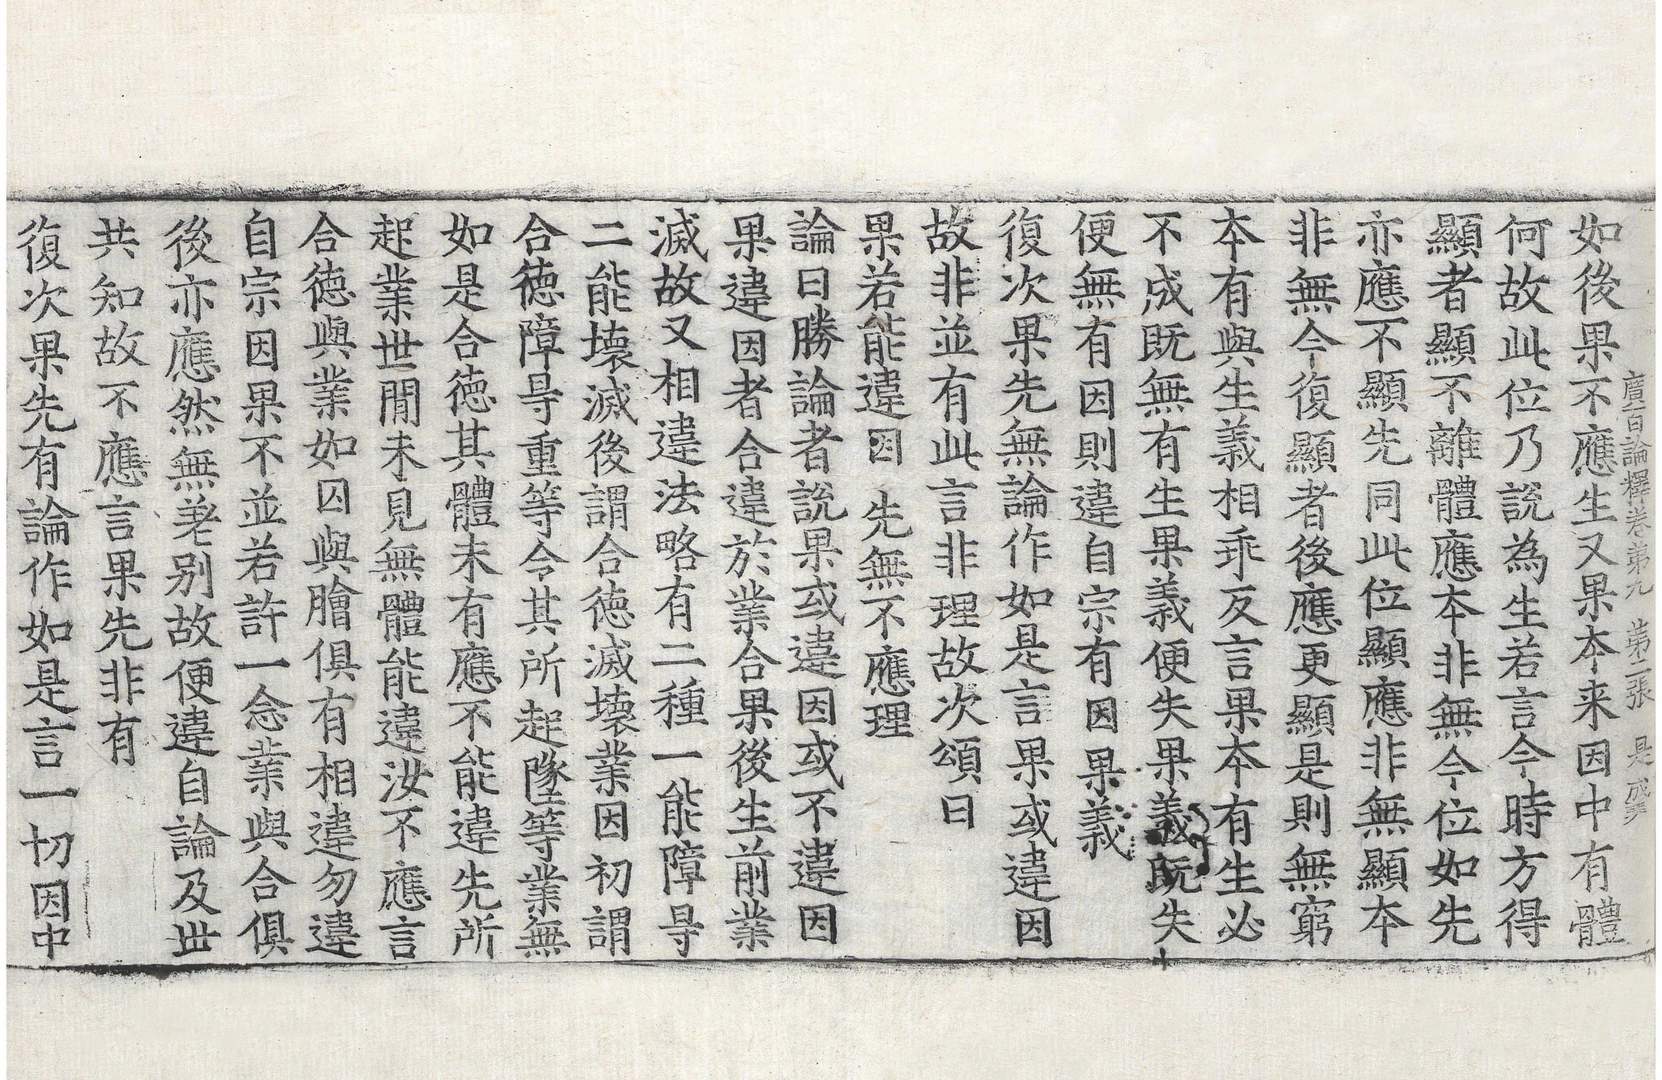 廣百論釋卷第九 第二張 是
如後果不應生又果本来因中有體
何故此位乃說為生若言今時方得
顯者顯不離體應本非無今位如先
亦應不顯先同此位顯應非無顯本
非無今復顯者後應更顯是則無窮
本有與生義相乖反言果本有生必
不成既無有生果義便失果義既失
便無有因則違自宗有因果義
復次果先無論作如是言果或違因
故非並有此言非理故次頌曰
果若能違因 先無不應理
論曰勝論者說果或違因或不違因
果違因者合違於業合果後生前業
滅故又相違法略有二種一能障㝵
二能壞滅後謂合徳滅壞業因初謂
合徳障㝵重等令其所起墜等業無
如是合徳其體未有應不能違先所
起業世閒未見無體能違汝不應言
合徳與業如囚與膾俱有相違勿違
自宗因果不並若許一念業與合俱
後亦應然無差别故便違自論及世
共知故不應言果先非有
復次果先有論作如是言一切因中